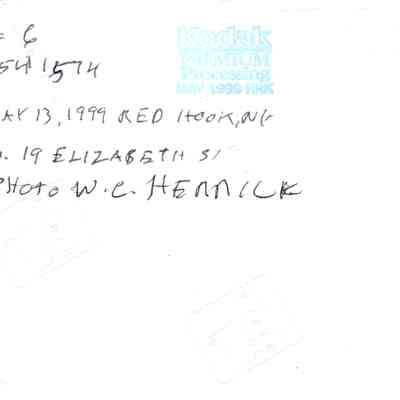 = 6
Kodak
PREMIUM
Processing
MAY 1999 HRK
54 1574
AY 13, 1999 RED HOOK, NY
. 19 ELIZABETH S
PHOTO W.C. HERRICK